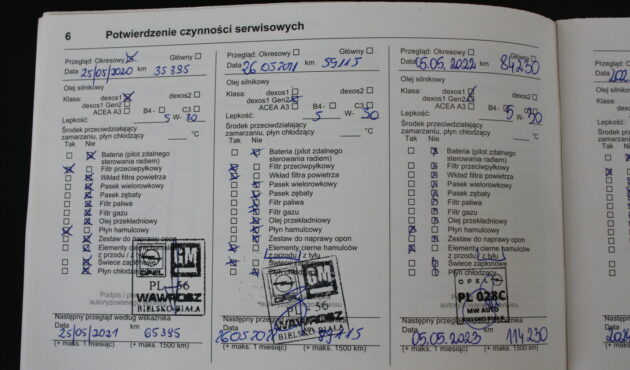 6 Potwierdzenie czynności serwisowych
Przegląd: Okresowy Główny
Data 25/05/2020 km 35385
Olej silnikowy
Klasa: dexos1 dexos2
dexos1 Gen2 B4- C3
ACEA A3
Lepkość: 5 W- 30
Środek przeciwdziałający
zamarzaniu, płyn chłodzący °C
Tak Nie
Bateria (pilot zdalnego
sterowania radiem)
Filtr przeciwpyłkowy
Wkład filtra powietrza
Pasek wielorowkowy
Pasek zębaty
Filtr paliwa
Filtr gazu
Olej przekładniowy
Płyn hamulcowy
Zestaw do naprawy opon
Elementy cierne
z przodu / z tyłu
Świece zapłonowe
Płyn chłodzący
OPEL GM
PL 56
WAWROSZ
BIELSKO-BIAŁA
Podpis i
autoryzowanego
Następny przegląd według wskaźnika
Data km
25/05/2021 65385
(+ maks. 1 miesiąc) (+ maks. 1500 km)
Przegląd: Okresowy Główny
Data 26 05 2021 km 59115
Olej silnikowy
Klasa: dexos1 dexos2
dexos1 Gen2 B4- C3
ACEA A3
Lepkość: 5 W- 30
Środek przeciwdziałający
zamarzaniu, płyn chłodzący °C
Tak Nie
Bateria (pilot zdalnego
sterowania radiem)
Filtr przeciwpyłkowy
Wkład filtra powietrza
Pasek wielorowkowy
Pasek zębaty
Filtr paliwa
Filtr gazu
Olej przekładniowy
Płyn hamulcowy
Zestaw do naprawy opon
Elementy cierne hamulców
z przodu / z tyłu
Świece zapłonowe
Płyn
OPEL GM
PL 56
WAWROSZ
BIELSKO-BIAŁA
Następny
89115
(+ maks. 1 miesiąc) (+ maks. 1500 km)
Przegląd: Okresowy Główny
Data 05.05.2022 km 84230
Olej silnikowy
Klasa: dexos1 dexos2
dexos1 Gen2 B4- C3
ACEA A3
Lepkość: 5 W- 30
Środek przeciwdziałający
zamarzaniu, płyn chłodzący °C
Tak Nie
Bateria (pilot zdalnego
sterowania radiem)
Filtr przeciwpyłkowy
Wkład filtra powietrza
Pasek wielorowkowy
Pasek zębaty
Filtr paliwa
Filtr gazu
Olej przekładniowy
Płyn hamulcowy
Zestaw do naprawy opon
Elementy cierne hamulców
z przodu / z tyłu
Świece zapłonowe
Płyn chłodzący
OPEL
PL 028C
MW AUTO
BIELSKO-BIAŁA
Następny przegląd
Data km
05.05.2023 114230
(+ maks. 1 miesiąc) (+ maks. 1500 km)